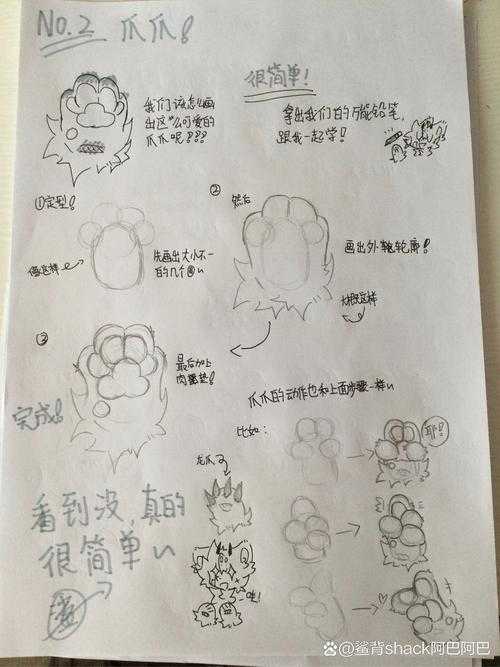 NO.2 爪爪!
我们该怎么画
出这"么可爱的
爪爪呢???
很简单!
拿出我们的万能铅笔,
跟我一起学!
①定型!
像这样
先画出大小不一
的几个
②
然后
画出外轮廓!
大概这样
③
最后加上
肉垫!
完成!
爪爪的动作也和上面步骤一样
比如:
耶!
龙爪
哇!
看到没,真的
很简单
鲨背shack阿巴阿巴